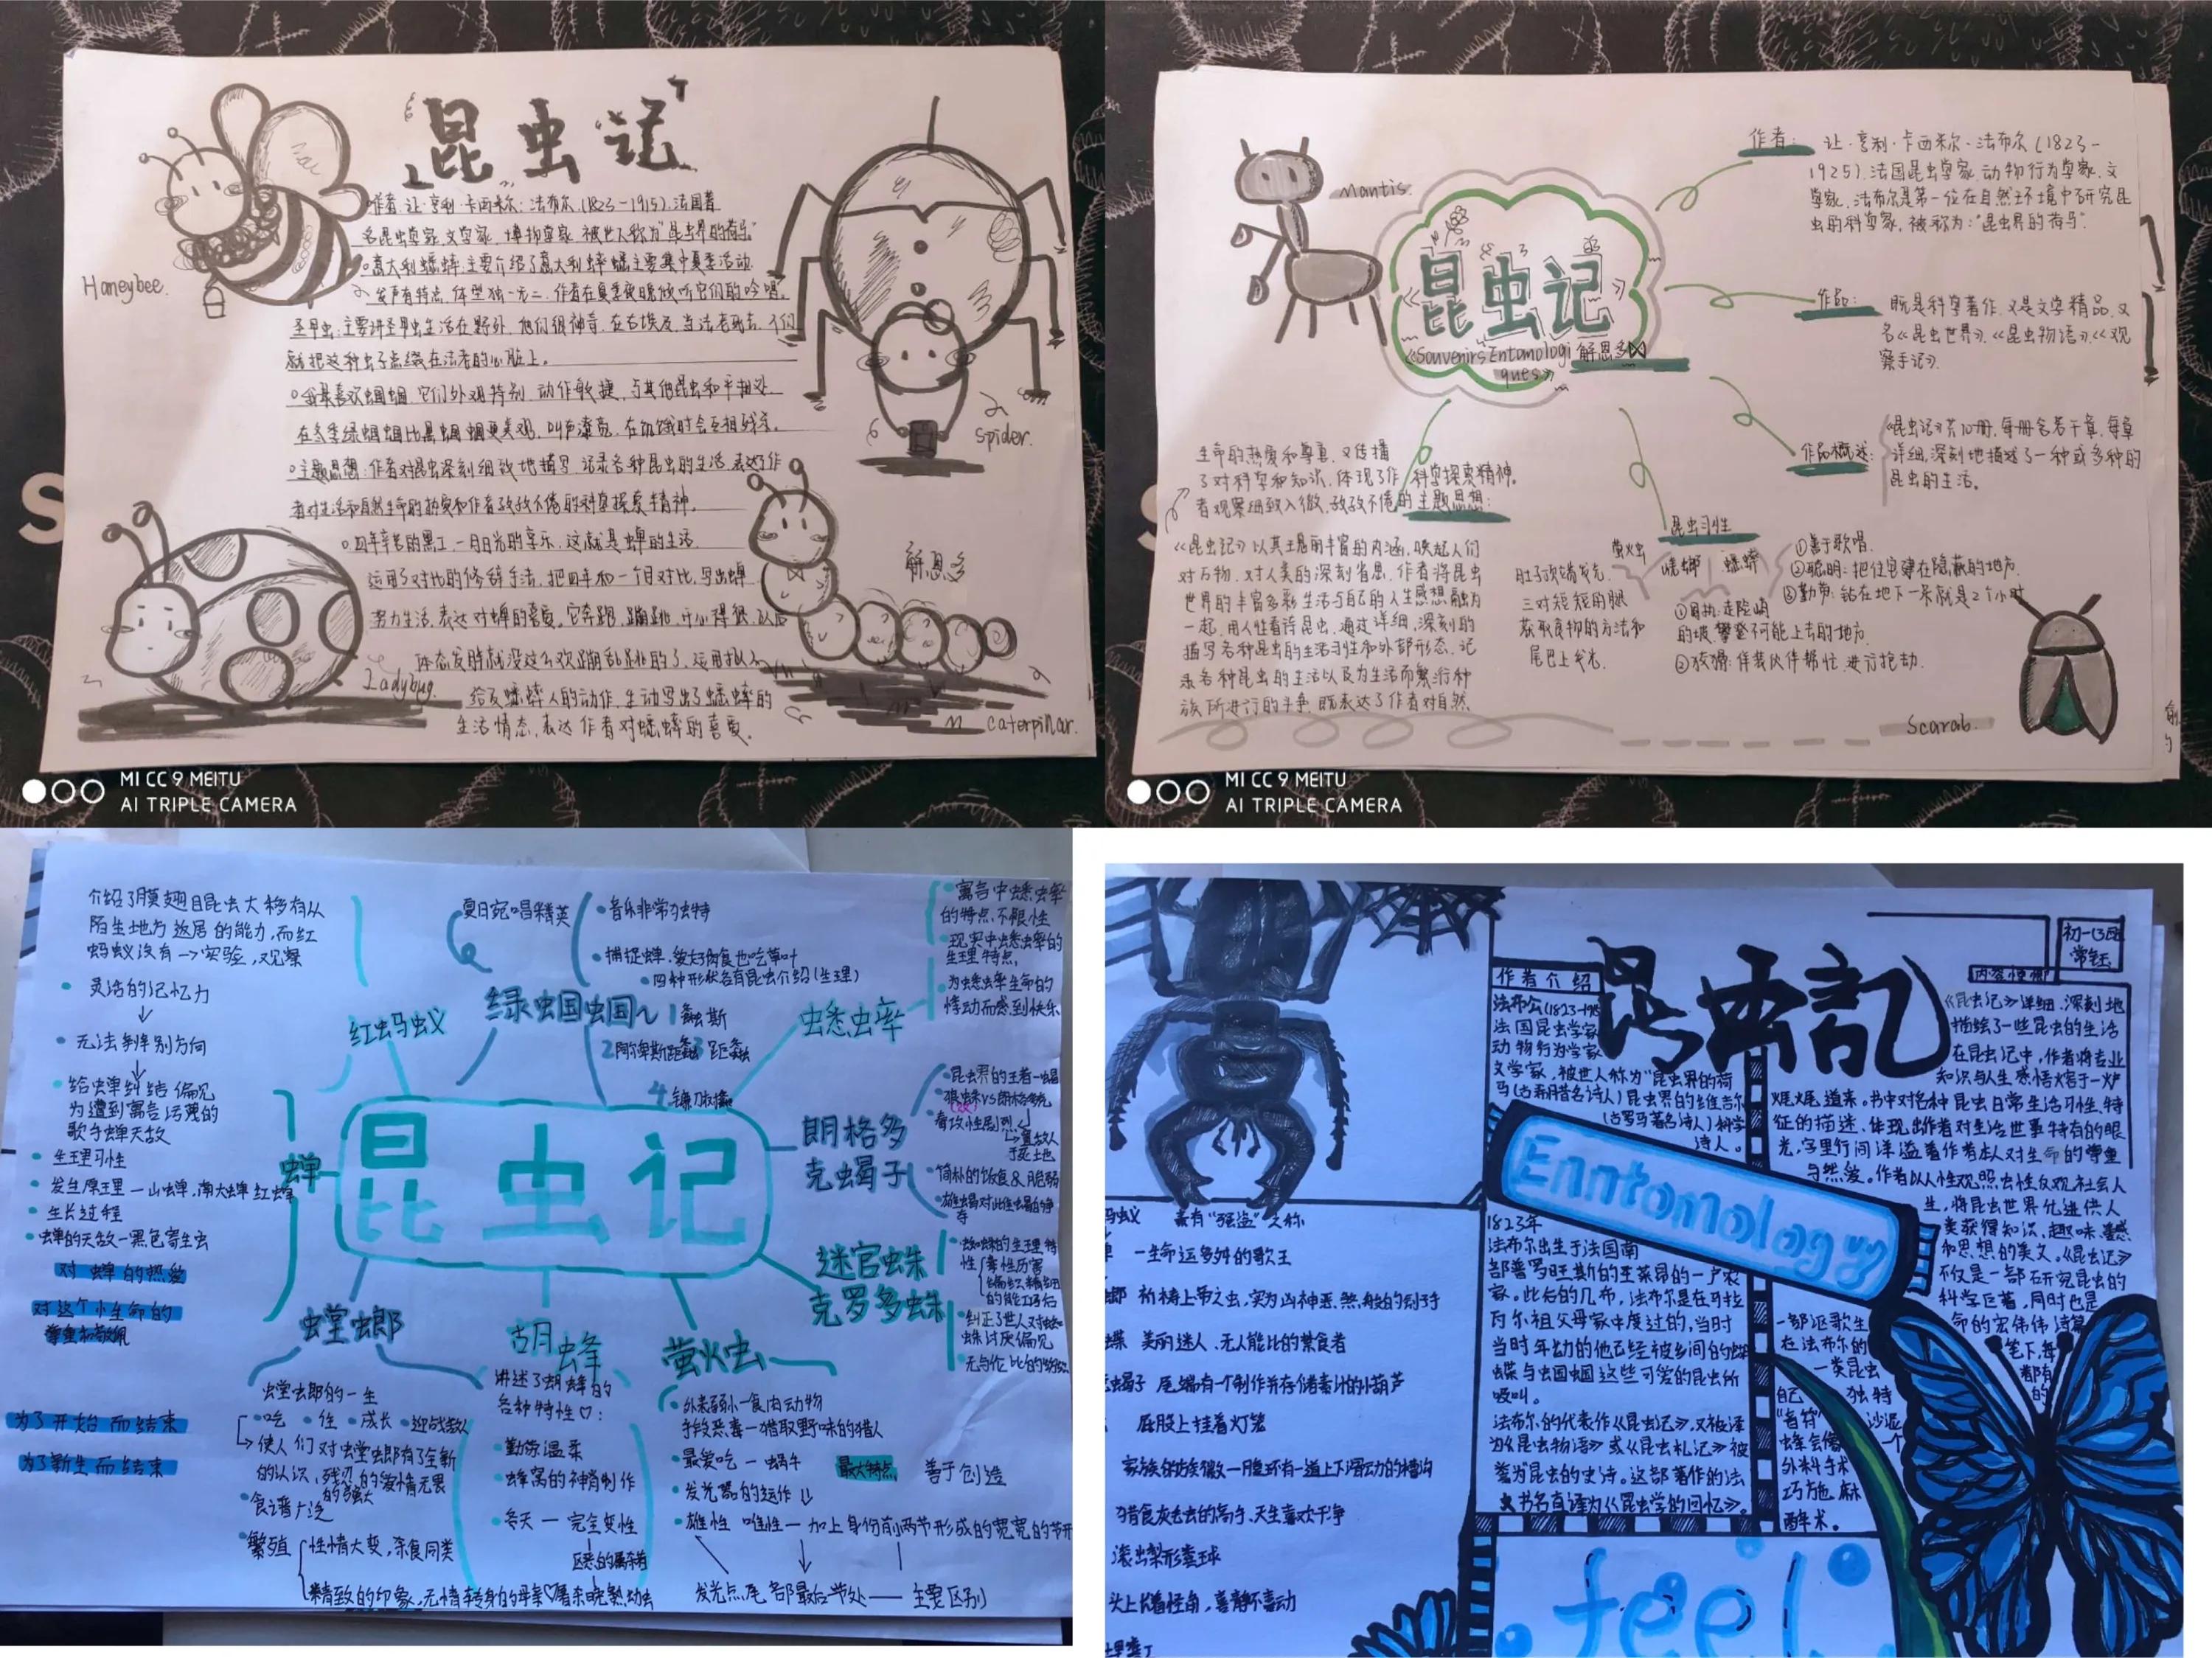 『昆虫记』
作者:让·亨利·卡西米尔·法布尔(1823-1915).法国著
名昆虫学家,文学家,博物学家,被世人称为“昆虫界的荷马”
意大利蟋蟀:主要介绍了意大利蟀蟋主要集中夏季活动.
发声有特点,体型独一无二,作者在夏季夜晚倾听它们的吟唱。
圣甲虫:主要讲圣甲虫生活在野外,他们很神奇,在古埃及,当法老死去,人们
就把这种虫子盖缝在法老的心脏上。
我最喜欢蝈蝈,它们外观特别,动作敏捷,与其他昆虫和平相处
在冬季绿蝈蝈比黑蝈蝈更美观,叫声漂亮,在饥饿时会互相残杀。
主题思想:作者对昆虫深刻细致地描写,记录各种昆虫的生活,表达了作
者对生活和自然生命的热爱和作者孜孜不倦的科学探索精神。
四年辛苦的黑工,一月日光的享乐,这就是蝉的生活.
运用了对比的修辞手法,把四年和一个月对比,写出蝉
努力生活,表达对蝉的喜爱。它奔跑,蹦跳,开心得很,以后
体态发胖就没这么欢蹦乱跳的了.运用拟人
给及蟋蟀人的动作,生动写出了蟋蟀的
生活情态,表达作者对蟋蟀的喜爱。
Honeybee.
spider.
Ladybug.
解恩多
caterpinar.
MI CC 9 MEITU
AI TRIPLE CAMERA
Mantis.
《昆虫记》
《Souvenirs Entomologi
ques》
解恩多
作者: 让·亨利·卡西米尔·法布尔(1823-
1925),法国昆虫学家,动物行为学家,文
学家,法布尔是第一位在自然环境中研究昆
虫的科学家,被称为:“昆虫界的荷马”
作品: 既是科学著作,又是文学精品,又
名《昆虫世界》,《昆虫物语》,《观
察手记》.
作品概述: 《昆虫记》共10册,每册含若干章,每章
详细,深刻地描述了一种或多种的
昆虫的生活。
生命的热爱和尊重,又传播
了对科学和知识,体现了作
者观察细致入微,孜孜不倦的
科学探索精神。
主题思想:
《昆虫记》以其主题丰富的内涵,唤起人们
对万物,对人类的深刻省思,作者将昆虫
世界的丰富多彩生活与自己的人生感想融为
一起,用人性看待昆虫,通过详细,深刻的
描写各种昆虫的生活习性和外部形态,记
录各种昆虫的生活以及为生活而繁衍种
族所进行的斗争,既表达了作者对自然
昆虫习性
萤火虫
蜣螂
蟋蟀
肚子顶端发光.
三对短短的腿
获取食物的方法和
尾巴上发光.
①固执:走险峭
的坡,攀登不可能上去的地方.
②狡猾:佯装伙伴帮忙,进行抢劫.
①善于歌唱.
②聪明:把住宅建在隐蔽的地方.
③勤劳:钻在地下一呆就是2个小时
Scarab.
MI CC 9 MEITU
AI TRIPLE CAMERA
昆虫记
介绍了膜翅目昆虫大移有从
陌生地方返居的能力,而红
蚂蚁没有→实验,观察
灵活的记忆力
无法判别方向
红蚂蚁
夏日宛唱精英
音乐非常独特
捕捉蝉,爱好肉食也吃草叶
四种形状各有昆虫介绍(生理)
绿蝈蝈
1 螽斯
2 阿尔卑斯距螽
3 距螽
4 镰刀树螽
蟋蟀
寓言中蟋蟀
的特点,不限性
现实中蟋蟀的
生理特点,
为蟋蟀生命的
悸动而感到快乐
给蝉纠结偏见
为遭到寓言污蔑的
歌手蝉天敌
生理习性
发生原理—山蝉,南大蝉红蝉
生长过程
蝉的天敌—黑色寄生虫
对蝉的热爱
对这个小生命的
尊重和敬佩
蝉
朗格多
克蝎子
昆虫界的王者—蝎
狼蛛vs朗格多克
(双)
毒攻性剧烈
置敌人
于死地
简朴的饮食&脆弱
雄蝎对此雌蝎的争
夺
迷宫蛛
克罗多蛛
蜘蛛的生理特
性
毒性厉害
编织精细
的能工巧匠
纠正了世人对蜘
蛛讨厌偏见
螳螂
螳螂的一生
吃 住 成长 迎战敌人
使人们对螳螂有了全新
的认识,残忍的激情无畏
的强大
食谱广泛
繁殖
性情大变,亲食同类
精致的印象,无情转身的母亲
为了开始而结束
为了新生而结束
胡蜂
讲述了蝴蜂的
各种特性♡:
勤劳温柔
蜂窝的神肖制作
冬天—完全变性
萤火虫
外表弱小—食肉动物
手段恶毒—猎取野味的猎人
最爱吃—蜗牛
最大特点 善于创造
发光器的运作
雄性 唯性—加上身份前两节形成的宽宽的节形
发光点,尾各部最后一节处——主要区别
昆虫記
初一(3)班
常钰
作者介绍
法布尔(1823-1915
法国昆虫学家
动物行为学家
文学家,被世人称为“昆虫界的荷
马(古希腊著名诗人)昆虫界的维吉尔
(古罗马著名诗人)科学
诗人。
《昆虫记》详细,深刻地
描绘了一些昆虫的生活
在昆虫记中,作者将专业
知识与人生感悟熔于一炉
娓娓道来。书中对各种昆虫日常生活习性,特
征的描述,体现出作者对生活世事特有的眼
光,字里行间洋溢着作者本人对生命的尊重
与热爱。作者以人性观照虫性反观社会人
生,将昆虫世界化进供人
类获得知识、趣味、美感
和思想的美文。《昆虫记》
不仅是一部研究昆虫的
科学巨著,同时也是
一部讴歌生
命的宏伟伟诗篇
在法布尔的
笔下,每
一类昆虫
都有
自己
独特
的
“音符”
沙泥
蜂会像
一个
外科手术
巧施麻
醉术。
Enntomology
1823年
法布尔出生于法国南
部普罗旺斯的圣莱昂的一户农
家。此后的几布,法布尔是在马拉
瓦尔祖父母家中度过的,当时
当时年幼的他已经被乡间的蝴
蝶与蝈蝈这些可爱的昆虫所
吸叫。
法布尔的代表作《昆虫记》,又被译
为《昆虫物语》或《昆虫札记》被
誉为昆虫的史诗。这部著作的法
文书名直译为《昆虫学的回忆》。
蚂蚁 素有“强盗”之称
一生命运多舛的歌王
祈祷上帝之虫,实为凶神恶煞般的刽子手
美丽迷人、无人能比的素食者
蝎子 尾端有一个制作并存储毒汁的小葫芦
屁股上挂着灯笼
家族的族徽—腹环有一道上下滑动的槽沟
猎食灰虫的高手、天生喜欢干净
滚出梨形粪球
头上长着怪角,喜静不喜动
feel